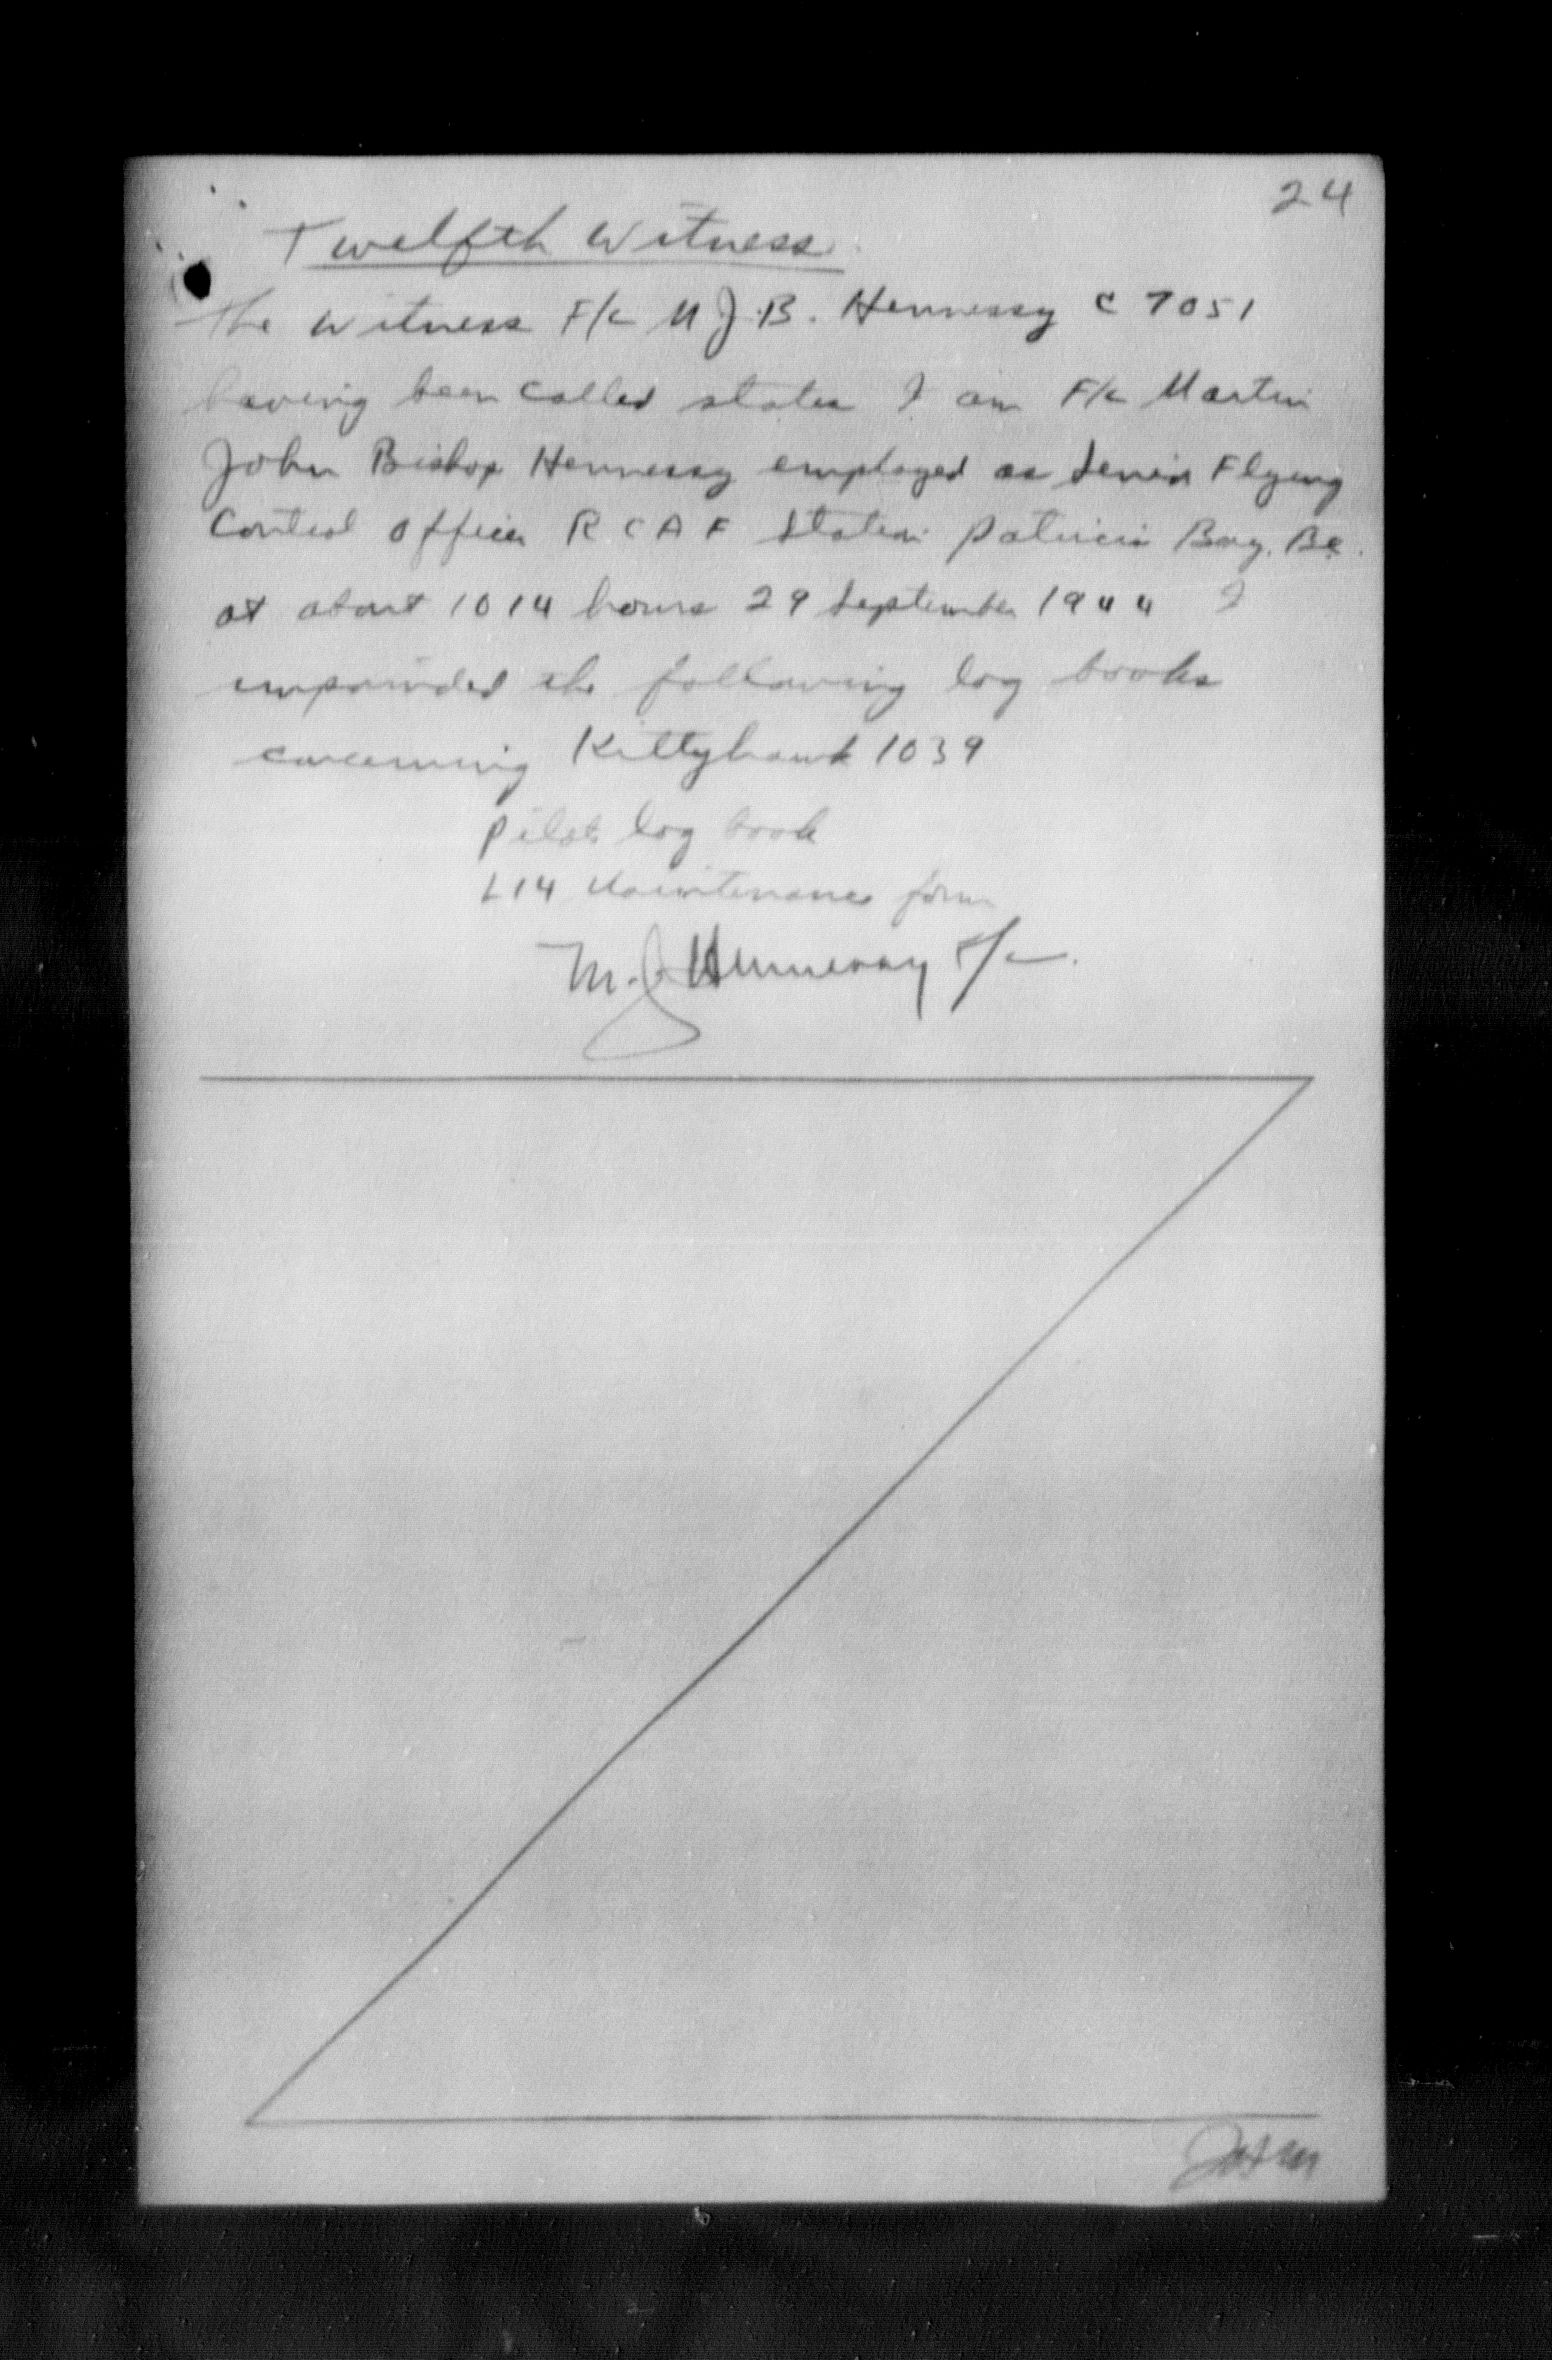 24
Twelfth Witness
The Witness F/L M J.B. Hennessy C 7051
having been called states I am F/L Martin
John Bishop Hennessy employed as Senior Flying
Control Officer R C A F Station Patricia Bay. BC.
at about 1014 hours 29 September 1944 I
impounded the following log books
concerning Kittyhawk 1039
Pilots log book
L14 Maintenance form
M.J. Hennessy F/L.